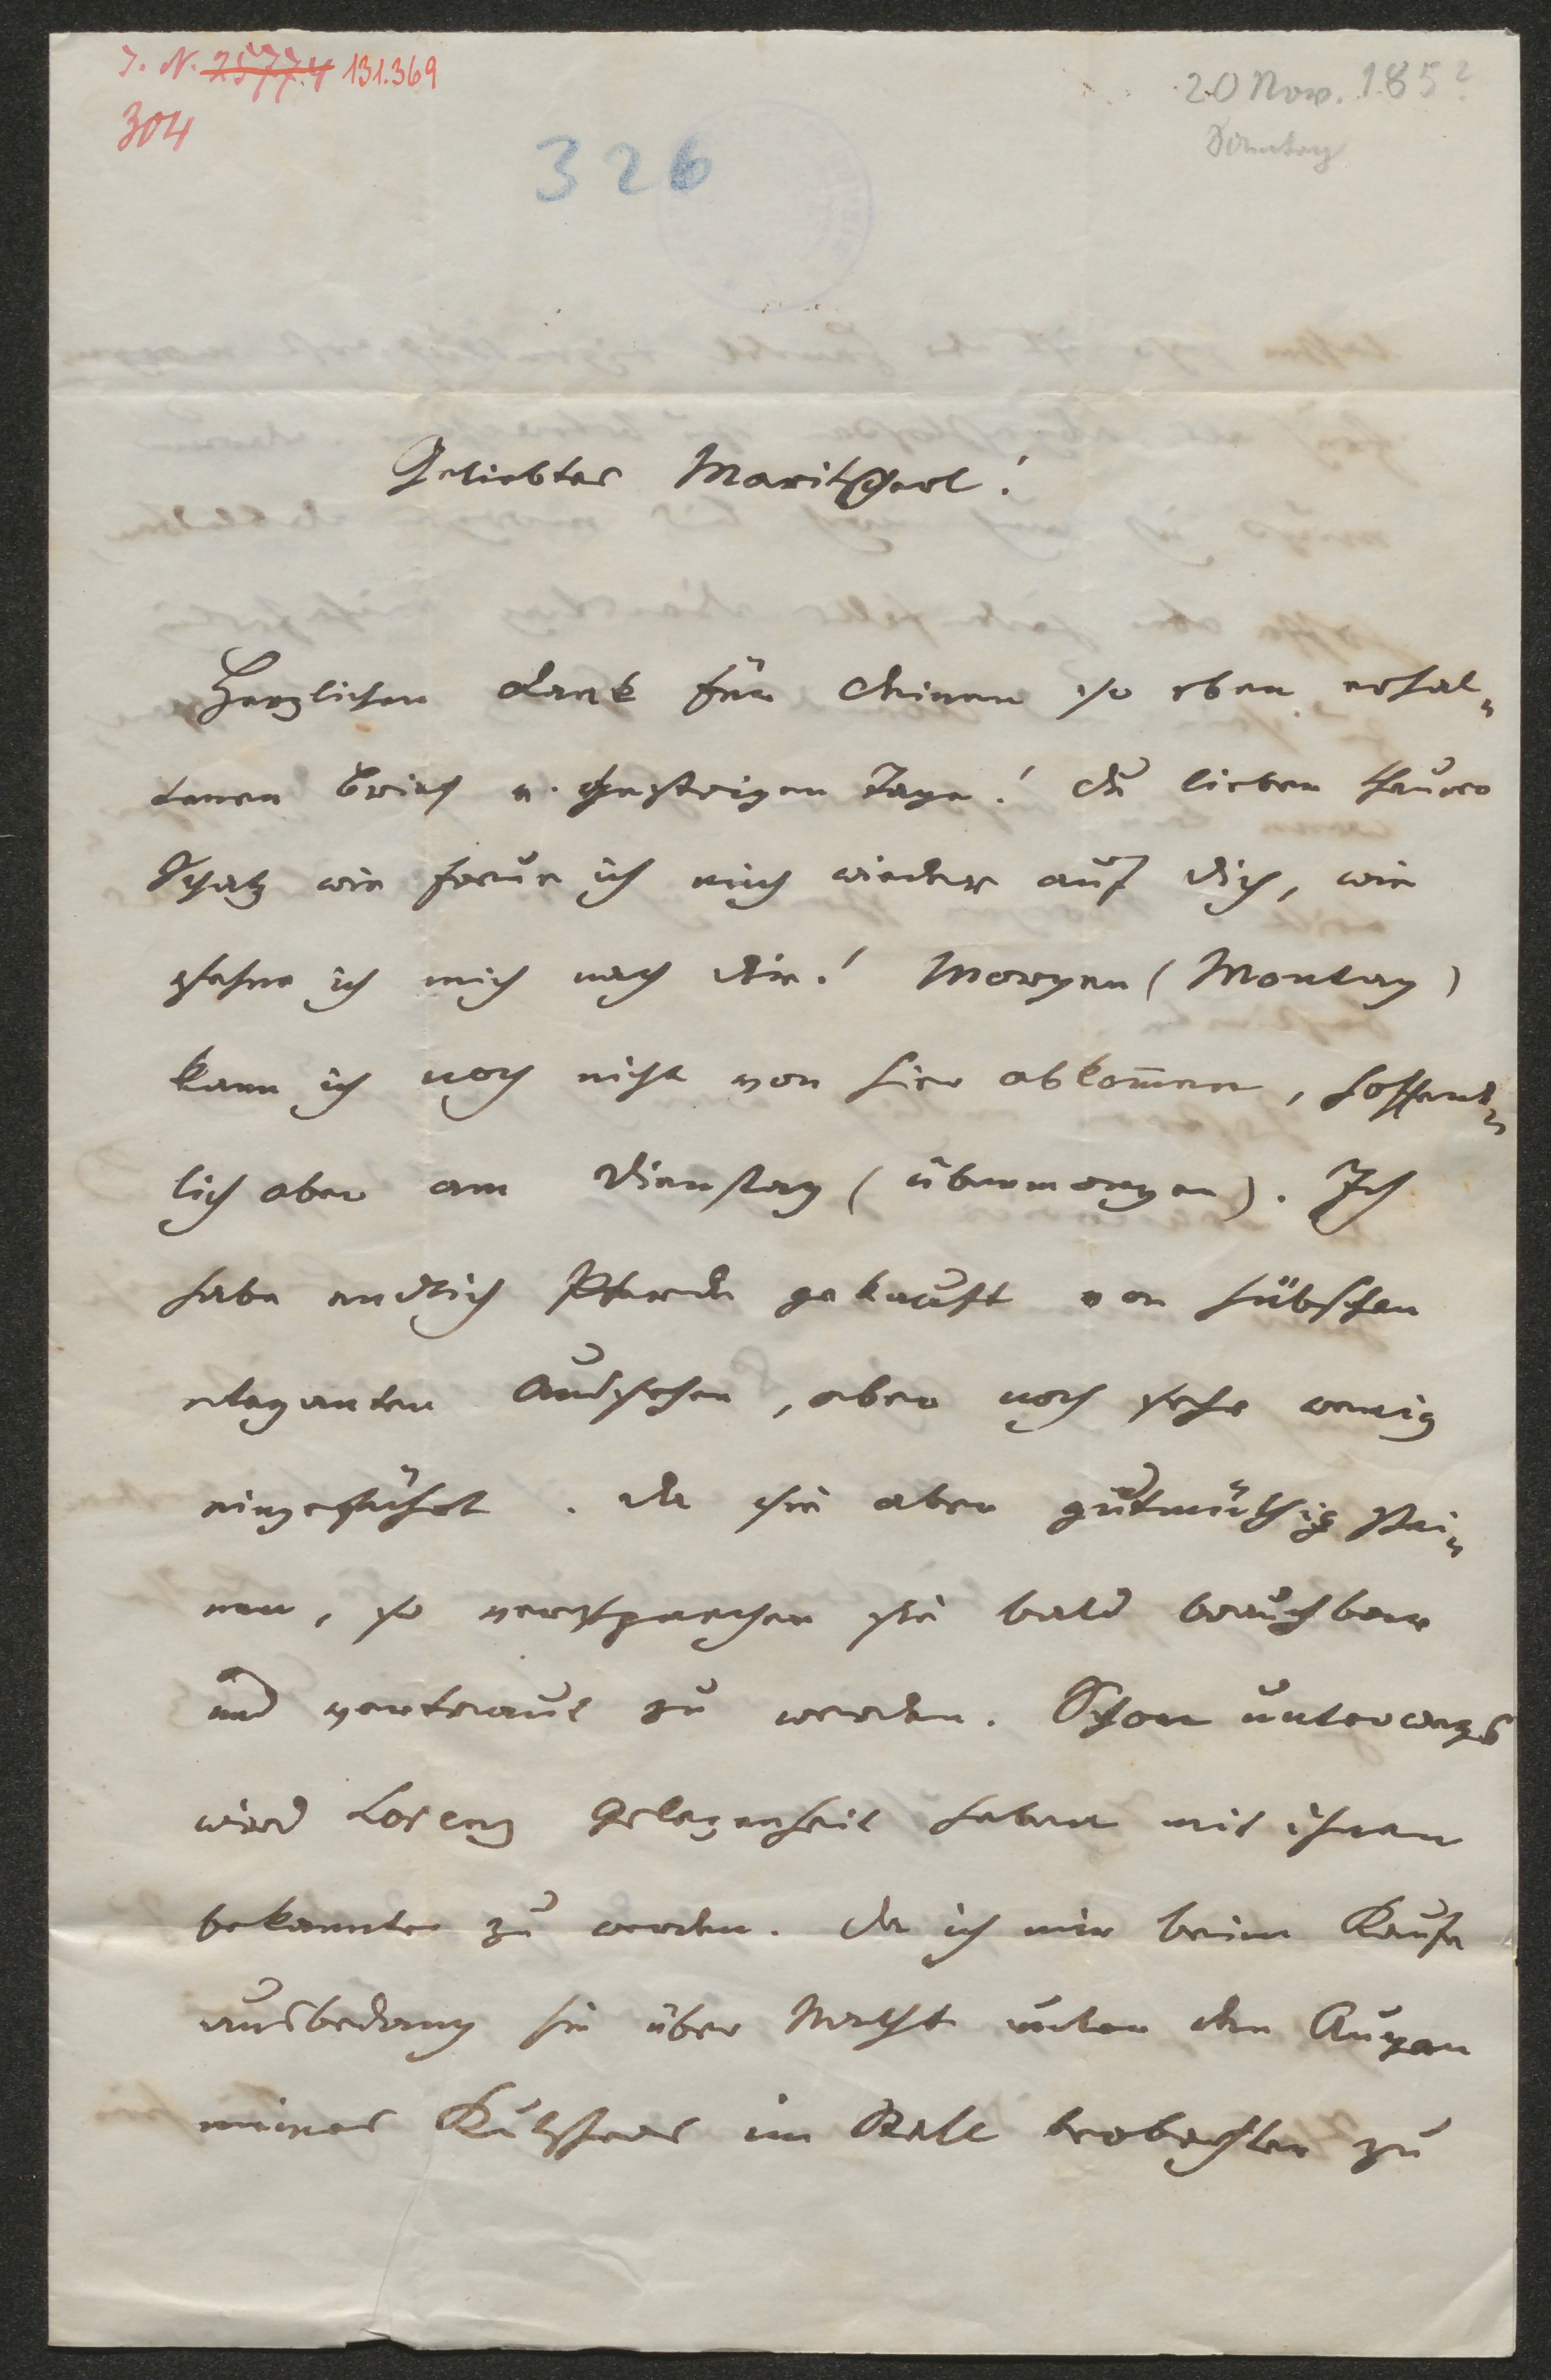 J. N. 25774 131.369
304
326
20 Nov. 185?
Sonntag
Geliebtes Maritscherl!
Herzlichen Dank für Deinen so eben erhal-
tenen Brief v. gestrigen Tage! Du lieber
Schatz wie freue ich mich wieder auf Dich, wie
sehne ich mich nach Dir! Morgen (Montag)
kann ich noch nicht von hier abkom̅en, hoffent-
lich aber am Dienstag (übermorgen). Ich
habe endlich Pferde gekauft von hübschen
eleganten Aussehen, aber noch sehr wenig
eingeführt. Da sie aber gutmüthig schei-
nen, so versprechen sie bald brauchbar
und vertraut zu werden. Schon unterwegs
wird Lorenz Gelegenheit haben mit ihnen
bekannter zu werden. Da ich mir beim Kaufe
ausbedang sie über Nacht unter den Augen
meines Kutschers im Stall beobachten zu